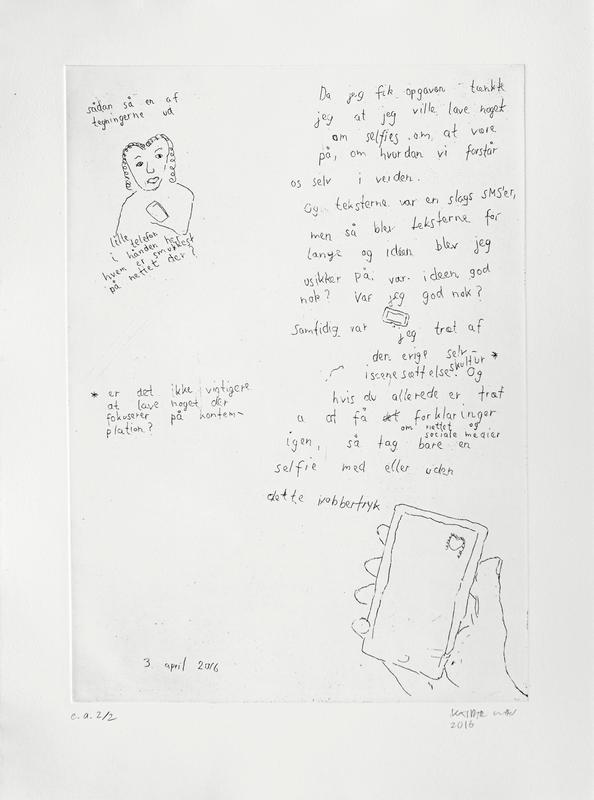 sådan så en af
tegningerne ud
lille telefon
i hånden her
hvem er smukkest
på nettet der?
* er det ikke vigtigere
at lave noget der
fokuserer på kontem-
plation?
3. april 2016
Da jeg fik opgaven tænkte
jeg at jeg ville lave noget
om selfies om at være
på, om hvordan vi forstår
os selv i verden.
Og teksterne var en slags SMS'er,
men så blev teksterne for
lange og ideen blev jeg
usikker på. var ideen god
nok? Var jeg god nok?
Samtidig var jeg træt af
den evige selv-
iscenesættelseskultur *
. Og
hvis du allerede er træt
a at få forklaringer
om nettet og
sociale medier
igen, så tag bare en
selfie med eller uden
dette kobbertryk
e.a. 2/2
2016